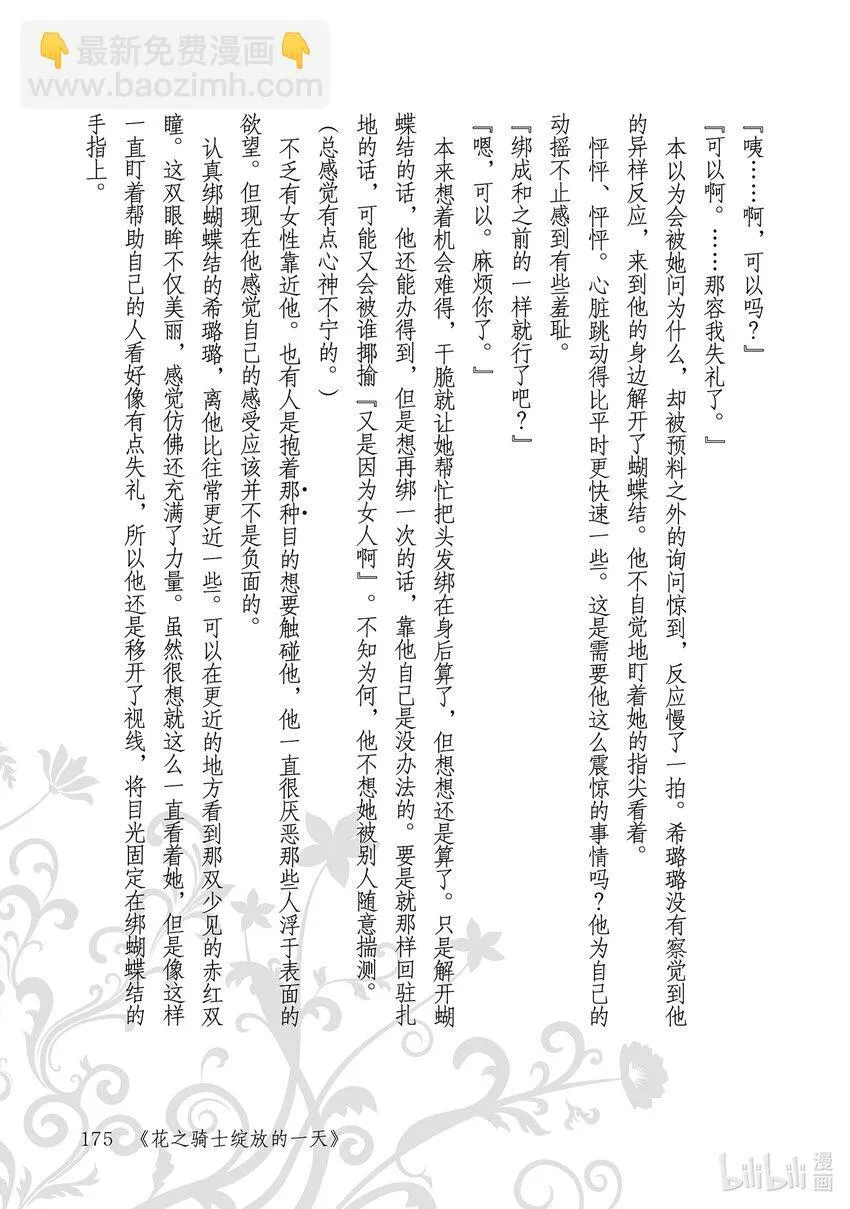 最新免费漫画
www.baozimh.com
『咦……啊，可以吗？』
『可以啊。……那容我失礼了。』
本以为会被她问为什么，却被预料之外的询问惊到，反应慢了一拍。希璐璐没有察觉到他
的异样反应，来到他的身边解开了蝴蝶结。他不自觉地盯着她的指尖看着。
怦怦、怦怦。心脏跳动得比平时更快速一些。这是需要他这么震惊的事情吗？他为自己的
动摇不止感到有些羞耻。
『绑成和之前的一样就行了吧？』
『嗯，可以。麻烦你了。』
本来想着机会难得，干脆就让她帮忙把头发绑在身后算了，但想想还是算了。只是解开蝴
蝶结的话，他还能办得到，但是想再绑一次的话，靠他自己是没办法的。要是就那样回驻扎
地的话，可能又会被谁揶揄『又是因为女人啊』。不知为何，他不想她被别人随意揣测。
（总感觉有点心神不宁的。）
不乏有女性靠近他。也有人是抱着那种目的想要触碰他，他一直很厌恶那些人浮于表面的
欲望。但现在他感觉自己的感受应该并不是负面的。
认真绑蝴蝶结的希璐璐，离他比往常更近一些。可以在更近的地方看到那双少见的赤红双
瞳。这双眼眸不仅美丽，感觉仿佛还充满了力量。虽然很想就这么一直看着她，但是像这样
一直盯着帮助自己的人看好像有点失礼，所以他还是移开了视线，将目光固定在绑蝴蝶结的
手指上。
175 《花之骑士绽放的一天》
bilibili 漫画